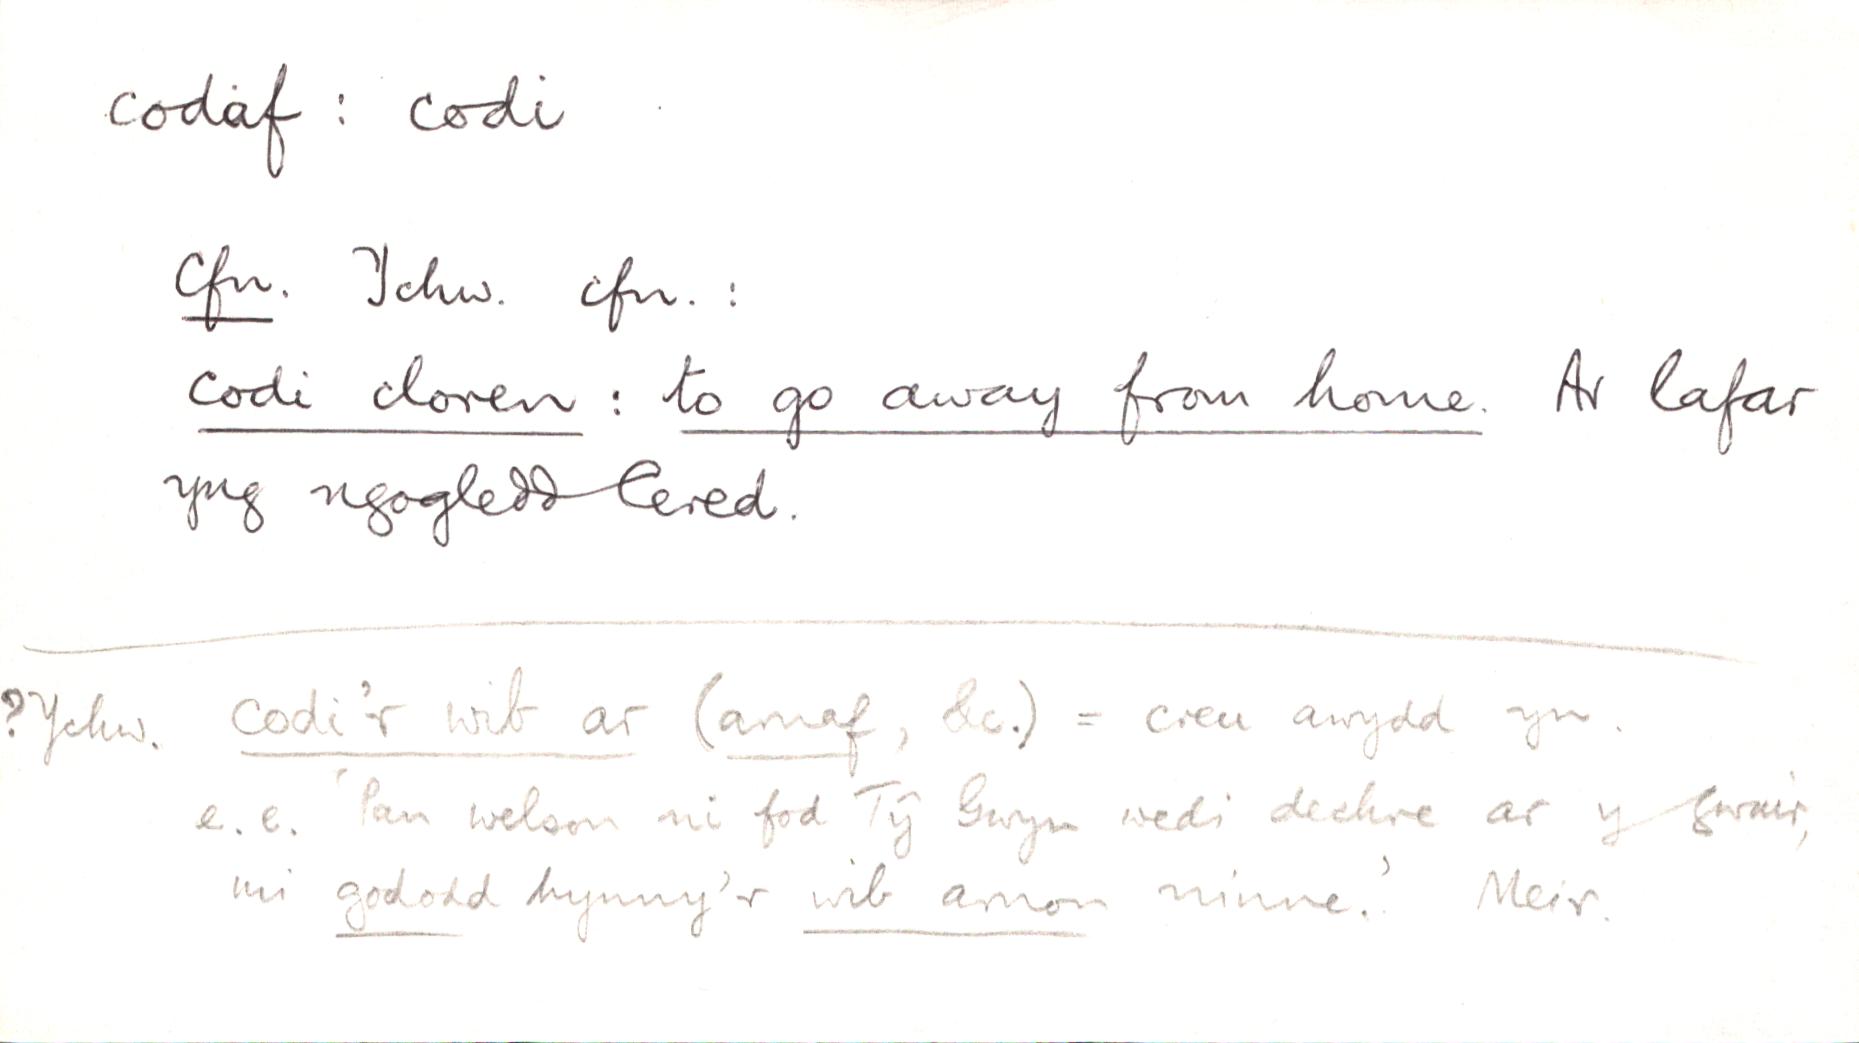 codaf : codi
Cfn. Ychw. cfn. :
codi cloren : to go away from home. Ar lafar
yng ngogledd Cered.
?Ychw. codi'r wib ar (arnaf, &c.) = creu awydd yn.
e.e. 'Pan welson ni fod Tŷ Gwyn wedi dechre ar y gwair,
mi gododd hynny'r wib arnon ninne.' Meir.